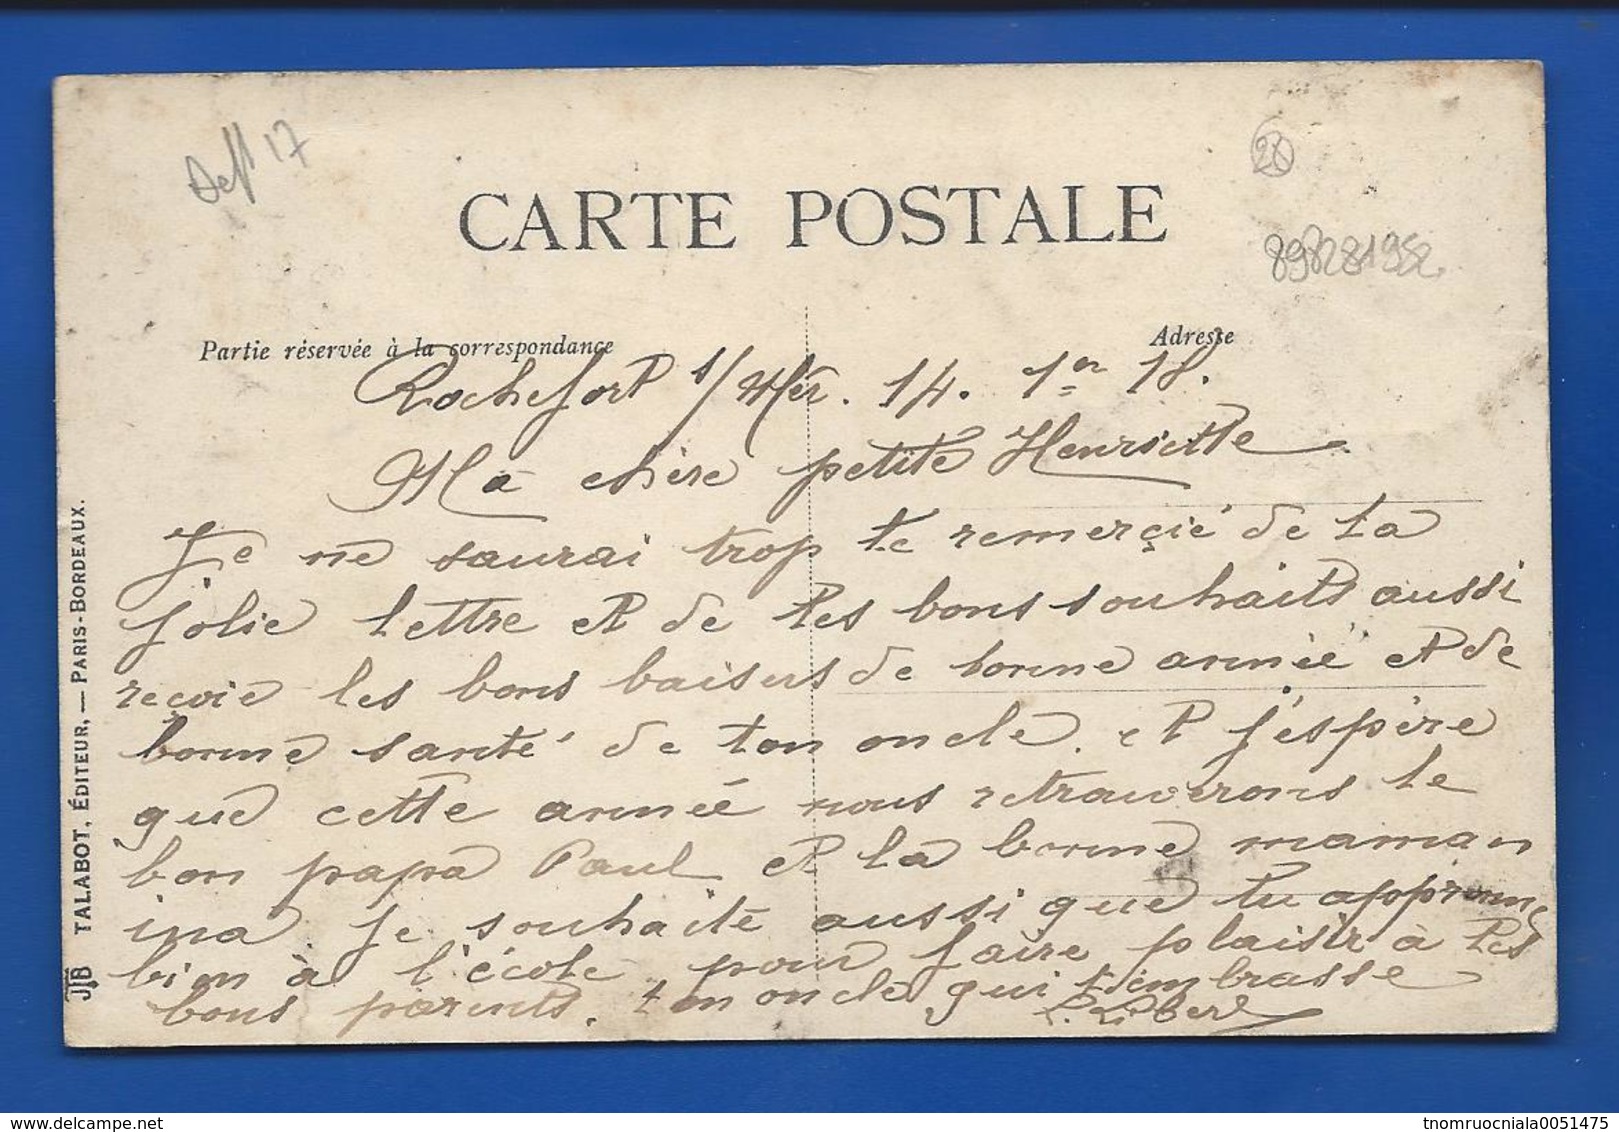 Dept 17
28
CARTE POSTALE
898281952
Partie réservée à la correspondance
Adresse
Rochefort s/Mer. 14. 1er 18.
Ma chère petite Henriette
Je ne saurai trop te remerçié de ta
jolie lettre et de tes bons souhaits aussi
reçoie les bons baisers de bonne année et de
bonne santé de ton oncle. et j'éspère
que cette année nous retrouverons le
bon papa Paul et la bonne maman
ina je souhaite aussi que tu apprenne
bien à l'école pour faire plaisir à tes
bons parents. ton oncle qui t'embrasse
TALABOT, ÉDITEUR, — PARIS-BORDEAUX.
JTB
www.delcampe.net
tnomruocniala0051475